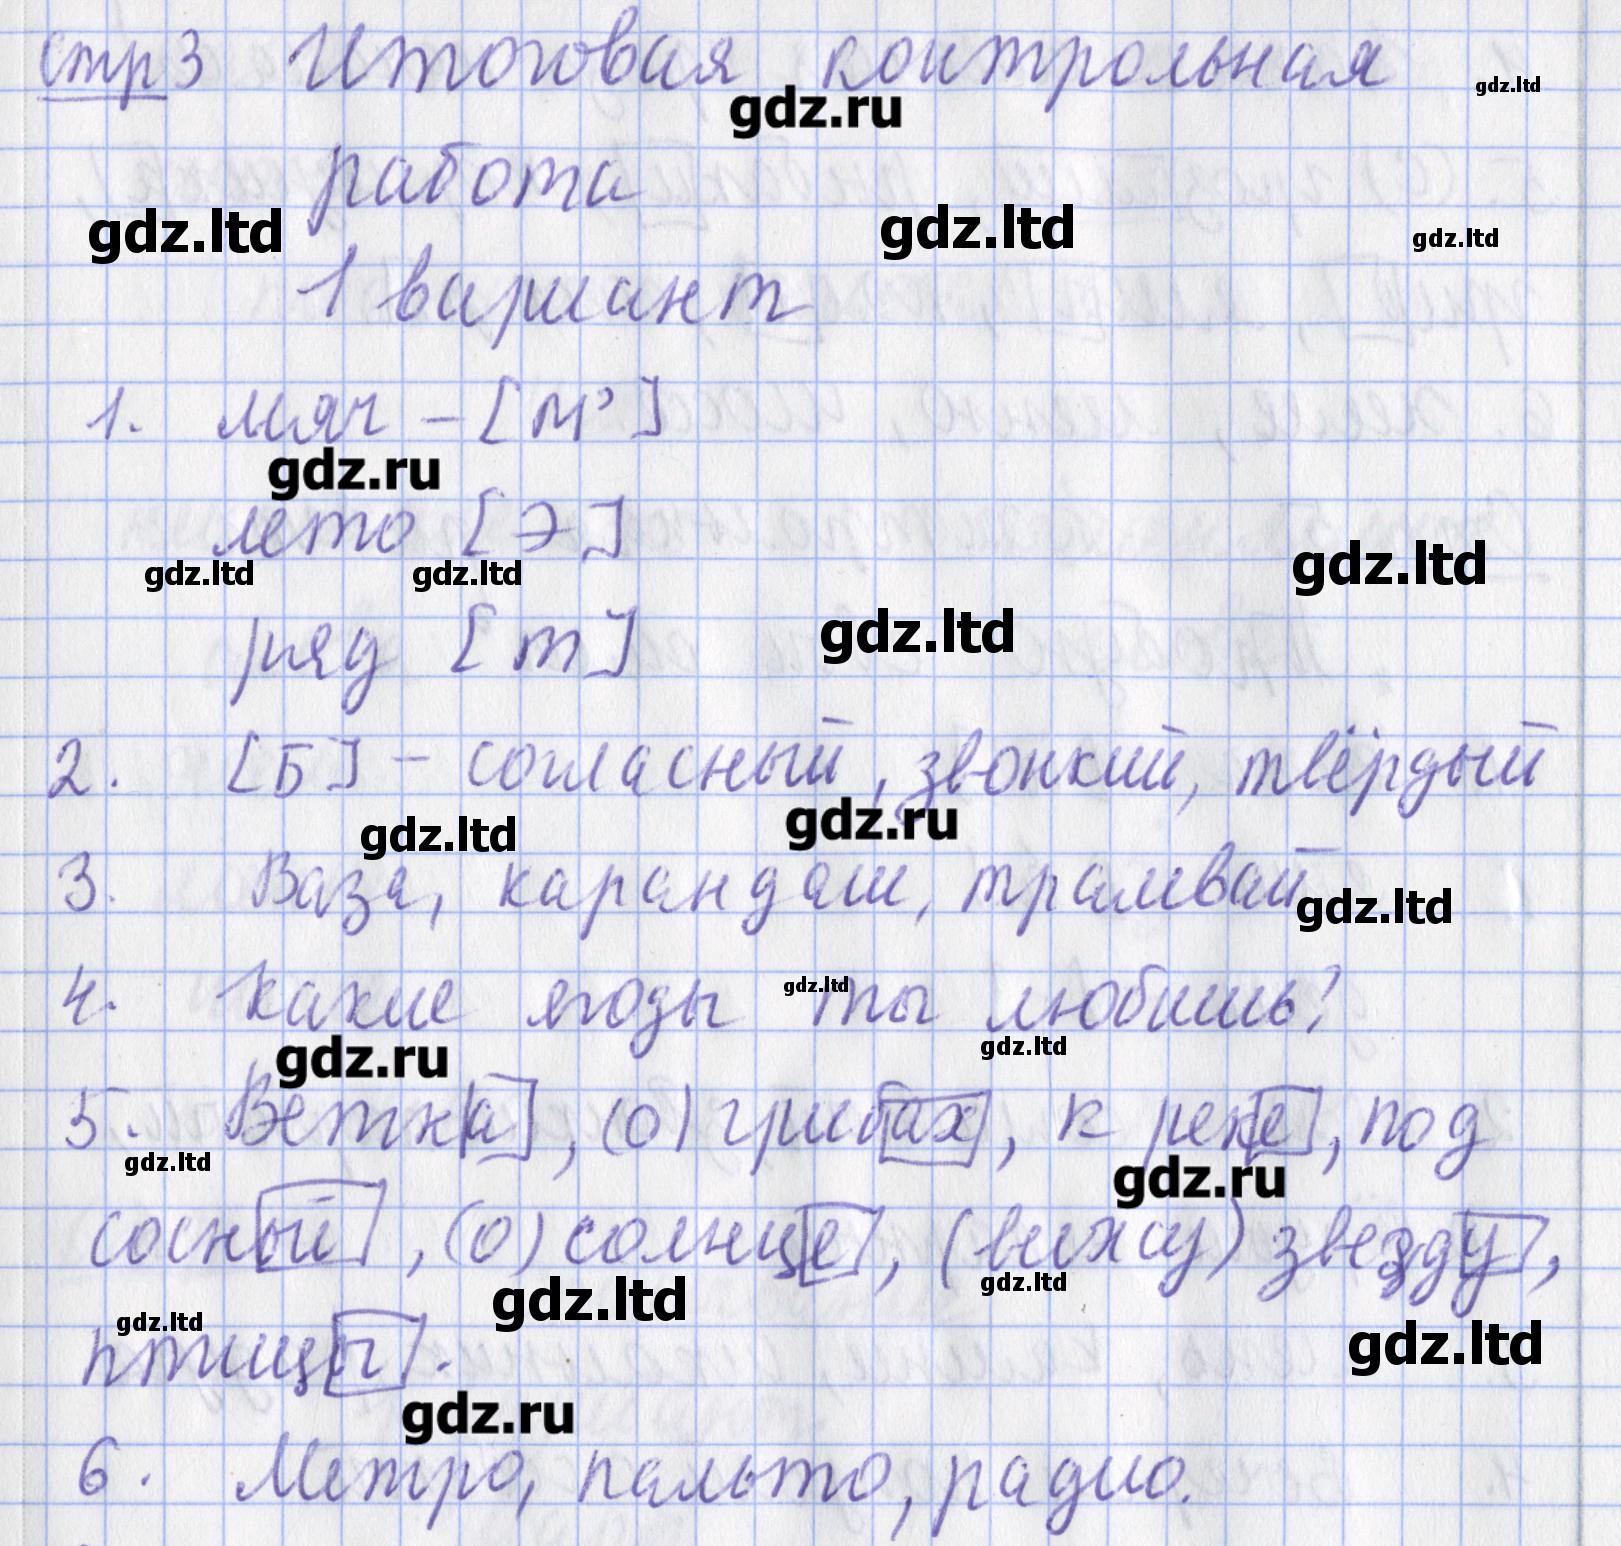 стр 3 Итоговая контрольная
gdz.ltd
gdz.ru
работа
gdz.ltd gdz.ltd gdz.ltd
1 вариант
1. мяч - [м']
gdz.ru
лето [э]
gdz.ltd gdz.ltd gdz.ltd
ряд [т]
gdz.ltd
2. [Б] - согласный, звонкий, твёрдый
gdz.ltd gdz.ru
3. Ваза, карандаш, трамвай
gdz.ltd
4. Какие ягоды ты любишь?
gdz.ltd
gdz.ru gdz.ltd
5. Ветка, (о) грибах, к реке, под
gdz.ltd gdz.ru
сосный, (о) солнце, (вижу) звезду,
gdz.ltd gdz.ltd gdz.ltd
птицы.
gdz.ltd
gdz.ru
6. Метро, пальто, радио.